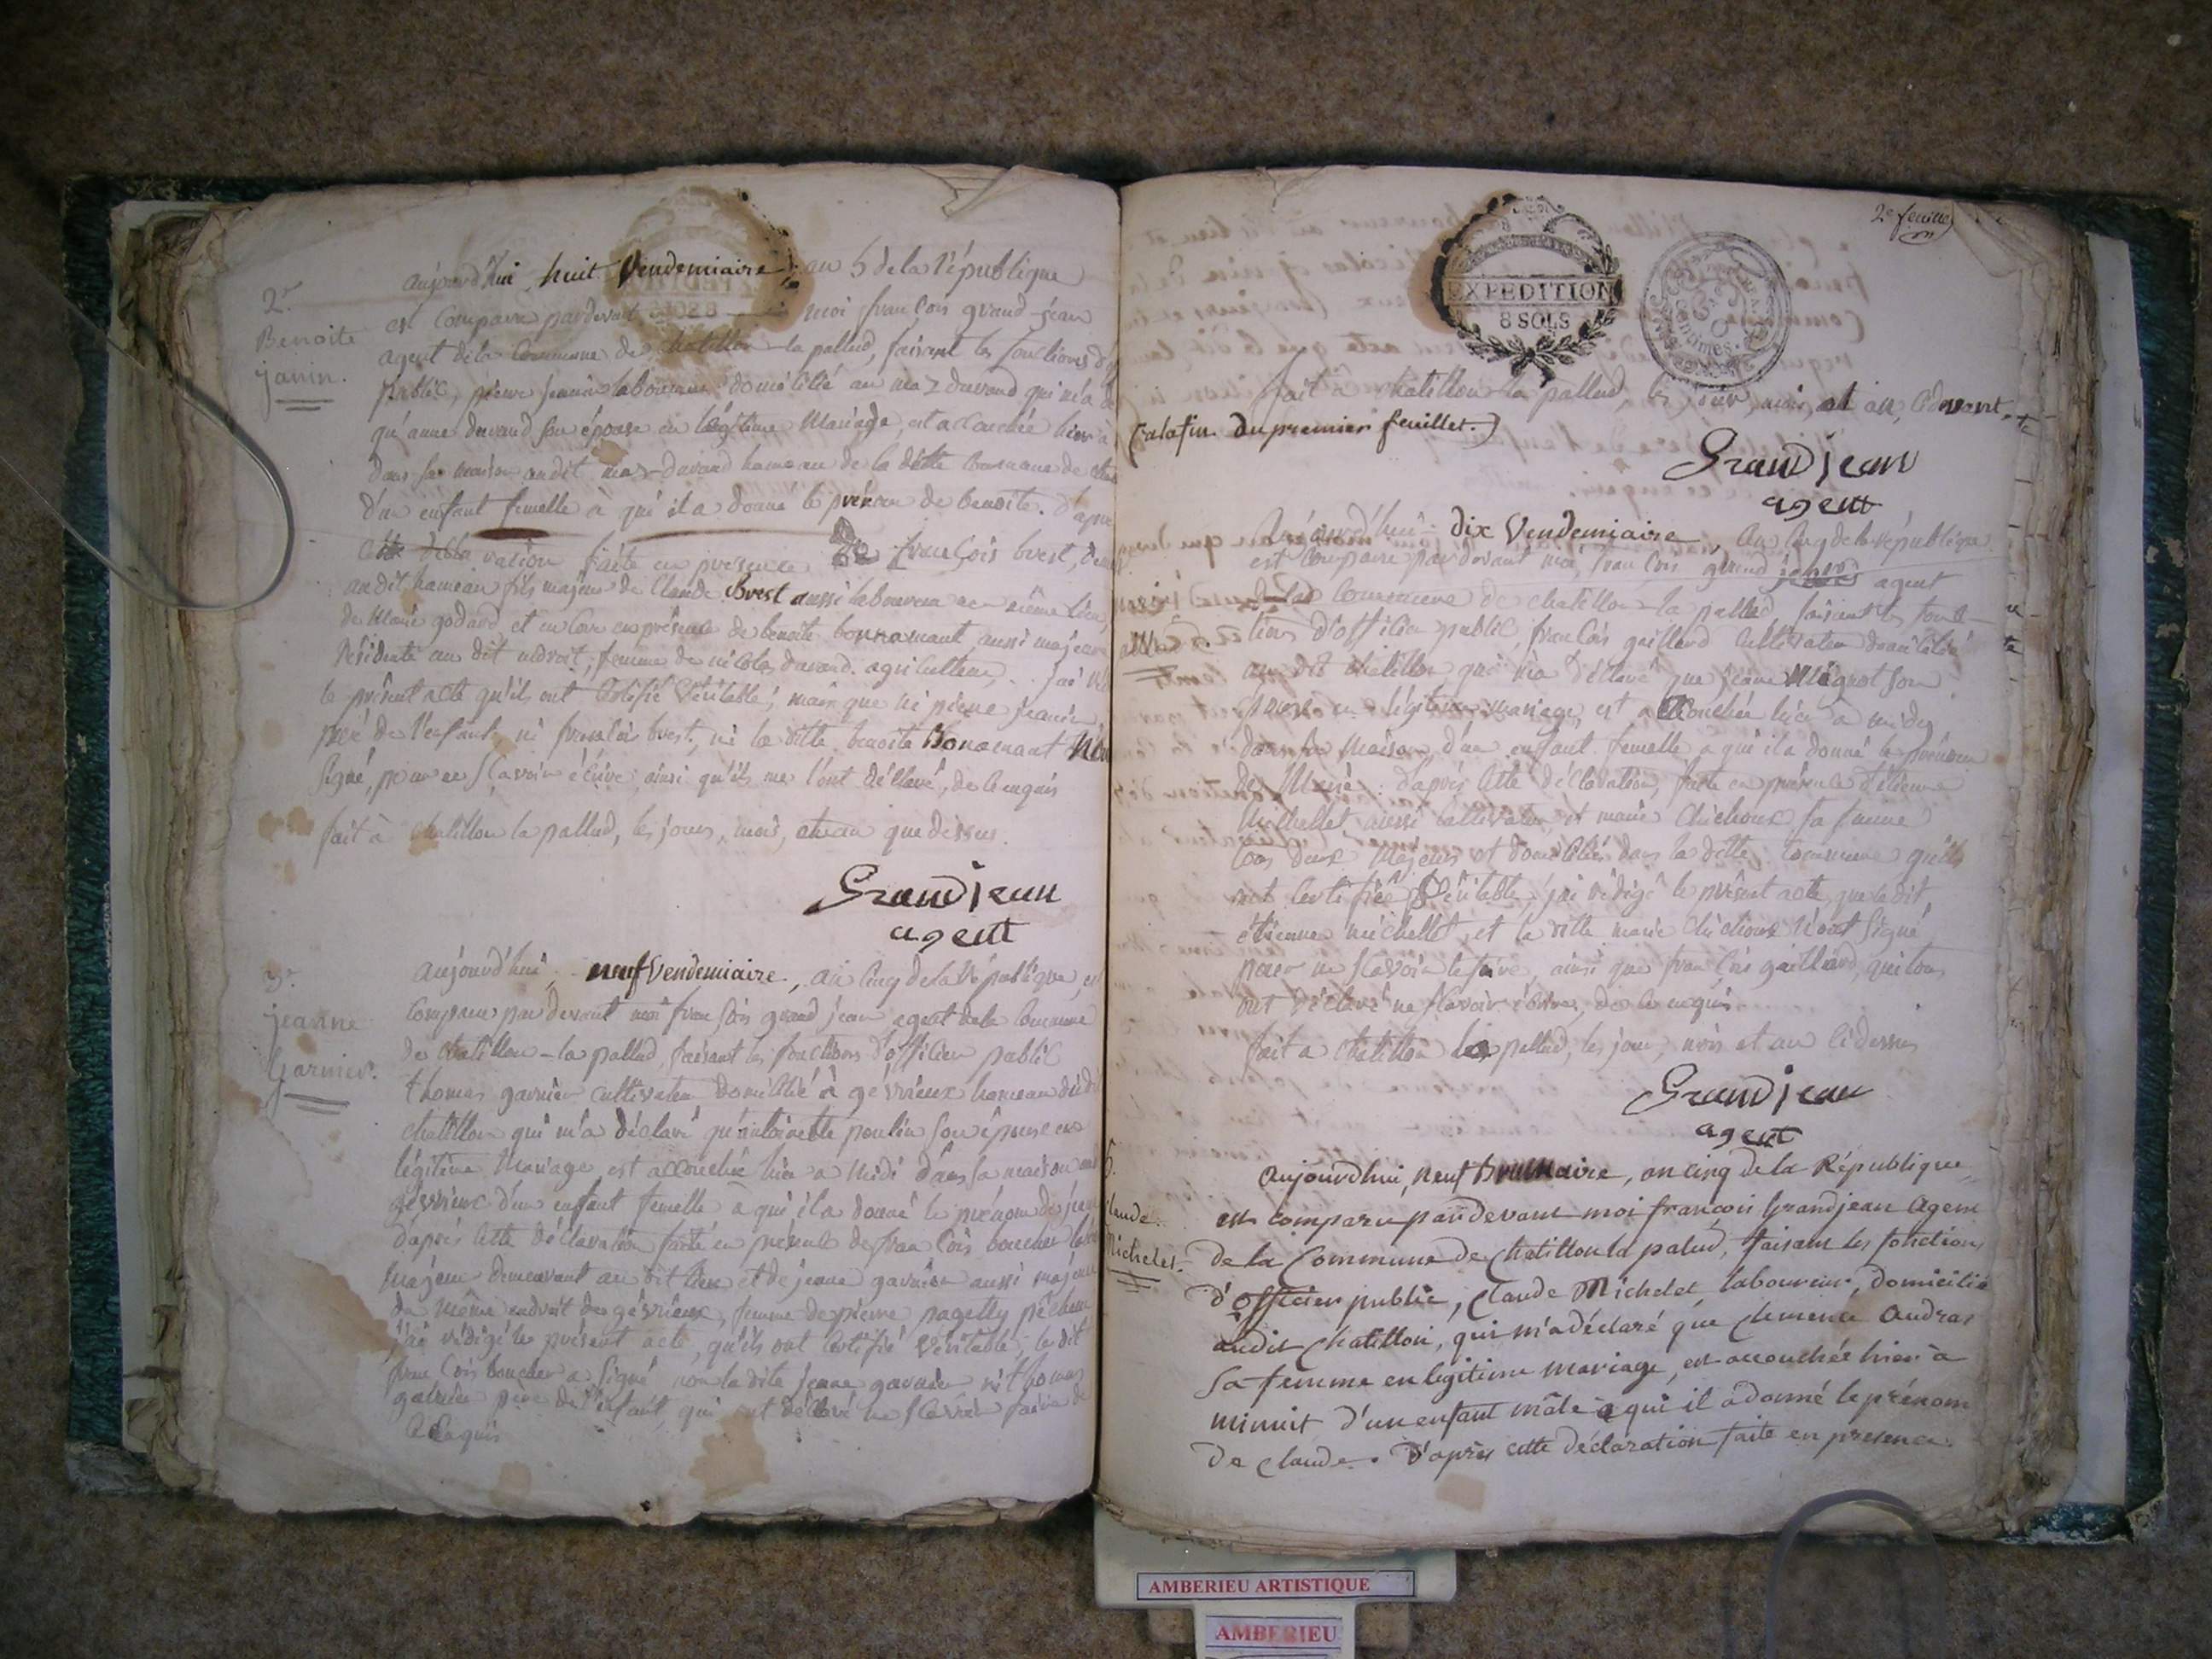 2e
Benoite
janin.
aujourd'hui huit Vendemiaire, an 5 de la république
est comparu pardevant moi françois grand-jean
agent de la Commune de chatillon-la pallud, faisant les fonctions
public, pierre janin laboureur domicilié au maz durand qui m'a
qu'anne durand son épouse en légitime Mariage, est accouchée hier
dans sa maison au dit maz-durand hameau de la ditte Commune de
d'un enfant femelle à qui il a donné le prénom de benoite. d'après
cette déclaration faite en présence de françois brest,
au dit hameau fils majeur de Claude Brest aussi laboureur au même lieu,
de Marie godard et encore en présence de benoite bonnamant, aussi majeure
résidente au dit endroit, femme de nicolas durand agriculteur, j'ai
le présent acte qu'ils ont certifié véritable, mais que ni pierre janin,
père de l'enfant, ni françois brest, ni la ditte benoite Bonamant n'ont
signé, pour ne sçavoir écrire, ainsi qu'ils me l'ont déclaré, de ce enquis
fait à chatillon la pallud, les jours, mois, et an que dessus.
Grandjean
agent
3e
jeanne
Garnier.
aujourd'hui, neuf Vendemiaire, an cinq de la république, est
comparu pardevant moi françois grand jean agent de la commune
de chatillon-la pallud, faisant les fonctions d'officier public
thomas garnier cultivateur domicilié à gévrieux hameau dudit
chatillon qui m'a déclaré qu'antoinette poulin son épouse en
légitime Mariage, est accouchée hier a midi dans sa maison
gévrieux d'un enfant femelle à qui il a donné le prénom de jeanne
d'après cette déclaration faite en présence de françois boucher
Majeur demeurant au dit lieu et de jeanne garnier aussi majeure
du même endroit de gévrieux, femme de pierre pagetty pêcheur
j'ai rédigé le présent acte, qu'ils ont certifié véritable, le dit
françois boucher a signé, non la dite jeanne garnier ni thomas
garnier père de l'enfant, qui ont déclaré ne sçavoir faire de
ce enquis
2e feuillet
EXPEDITION
8 SOLS
50
Centimes.
fait à chatillon la pallud, les jour, mois, et an, cidevant.
(a la fin du premier feuillet.)
Grandjean
agent
Aujourd'hui dix Vendemiaire, an cinq de la république
est comparu par devant moi, françois grand jean agent
de la Commune de chatillon-la pallud, faisant les fonc-
tions d'officier public, françois gaillard cultivateur domicilié
au dit chatillon qui m'a déclaré que jeanne Mignot son
épouse en légitime mariage, est accouchée hier à midy
dans sa Maison, d'un enfant femelle a qui il a donné le prénom
de Marie: d'après cette déclaration, faite en présence d'étienne
Michellet aussi cultivateur et marie Chichoux sa femme
tous deux Majeurs et domiciliés dans la ditte commune qu'ils
ont certifiée Véritable, j'ai rédigé le présent acte, que le dit
étienne michellet, et la ditte marie chichoux n'ont signé
pour ne sçavoir le faire, ainsi que françois gaillard, qui tous
ont déclaré ne sçavoir écrire, de ce enquis.
fait a chatillon la pallud, les jour, mois et an ci dessus
Grandjean
agent
5.
Claude
Michelet.
Aujourdhui, neuf Brumaire, an cinq de la République,
est comparu pardevant moi françois Grandjean Agent
de la Commune de Chatillon la palud, faisant les fonctions
d'officier public, Claude Michelet, laboureur, domicilié
audit Chatillon, qui m'a déclaré que Clemence Audras
sa femme en legitime mariage, est accouchée hier à
minuit d'un enfant mâle à qui il a donné le prénom
De Claude. D'après cette déclaration faite en presence
AMBERIEU ARTISTIQUE
AMBERIEU